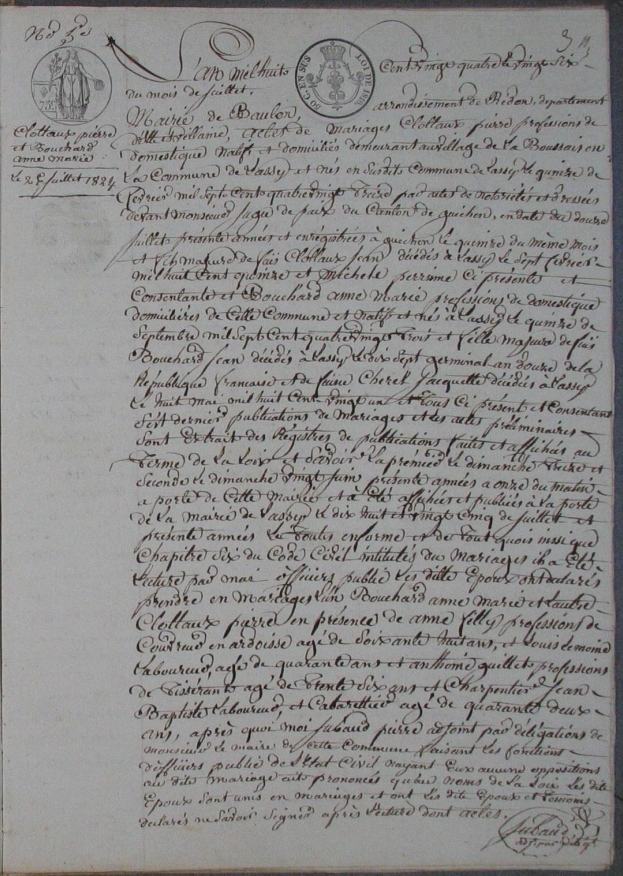 No 5e
3
75c
50 CEN SUS
LOI DE 1816
Clottaux pierre
et Bouchard
anne marie
Le 25 juillet 1824
L'an mil huits Cent vingt quatre le vingt Six
du mois de juillet.
Mairie de Baulon, arrondissement de Redon, departement
d'ille et villaine, actes de Mariages Clottaux pierre professions de
domestique natif et domiciliés demeurant au village de la Boussais en
La Commune de Lassy et nés en Susdite Commune de Lassy Le quinze de
fevrier mil Sept Cent quatre vingt par actes de notoriétés et dressés
devant monsieur juge de paix du Canton de guichen, en date du douze
juillet présente années et enregistrées à guichen le quinze du même mois
et fils majeurs de fais Clottaux jean décédés à Lassy Le Sept fevrier
mil huit Cent quinze et michele perrinne Ci présente et
Consentante et Bouchard anne Marie professions de domestique
domiciliéres de Cette Commune et natif et nés à Lassy Le quinze de
Septembre mil Sept Cent quatre vingt trois et fille majeure de fais
Bouchard jean décédés à Lassy Le dix Sept germinal an douze de la
République francaise et de faise Cherel jacquette décédés à Lassy
Le huit mai mil huit Cent vingt un et tous Ci présent et Consentant
dernier publications de mariages et Les actes préliminaires
Sont Extrait des Registres de publications faites et affichés au
Terme de La Loix et Savoir La première Le dimanche treize et
Seconde Le dimanche vingt juin présente années a onze du matin
a porte de Cette Mairie et à Été affichés et publiés à La porte
de La mairie de Lassy Le dix huit et vingt Cinq de juillet et
présente années Le Toutes en forme et de Tout quois insi que
Chapitre Six du Code Civil institulés du Mariages il a Été
Lecture par moi officiers publié Les ditte Epoux ont dalarés
prendre en Mariages L'un Bouchard anne marie et Lautre
Clottaux pierre en présence de anne filly professions de
Couvreur en ardoisse agé de Soixante huit ans, et Louis Lemoine
Laboureur, agé de quarante ans et anthoine quillet professions
de Tisserant agé de Trente Six ans et Charpentier jean
Baptiste Laboureur, et Cabarettier agé de quarante deux
ans, après quoi moi jubaud pierre adjoint par déligations de
monsieur Le maire de Cette Commune faisant Les fonctions
d'officiers publié de L'état Civil n'ayant Eux aucune oppositions
au dite mariage ait prononcés qu'au noms de La Loix Les dite
Epoux Sont unis en mariages et ont Les dite Epoux et Temoins
declarés ne Savoir Signer après Lecture dont actes.
jubaud